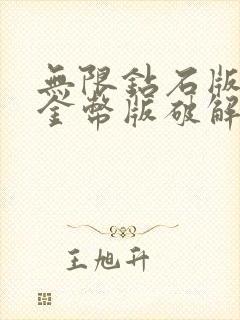 無限鈷石版
金幣版破解
王旭升